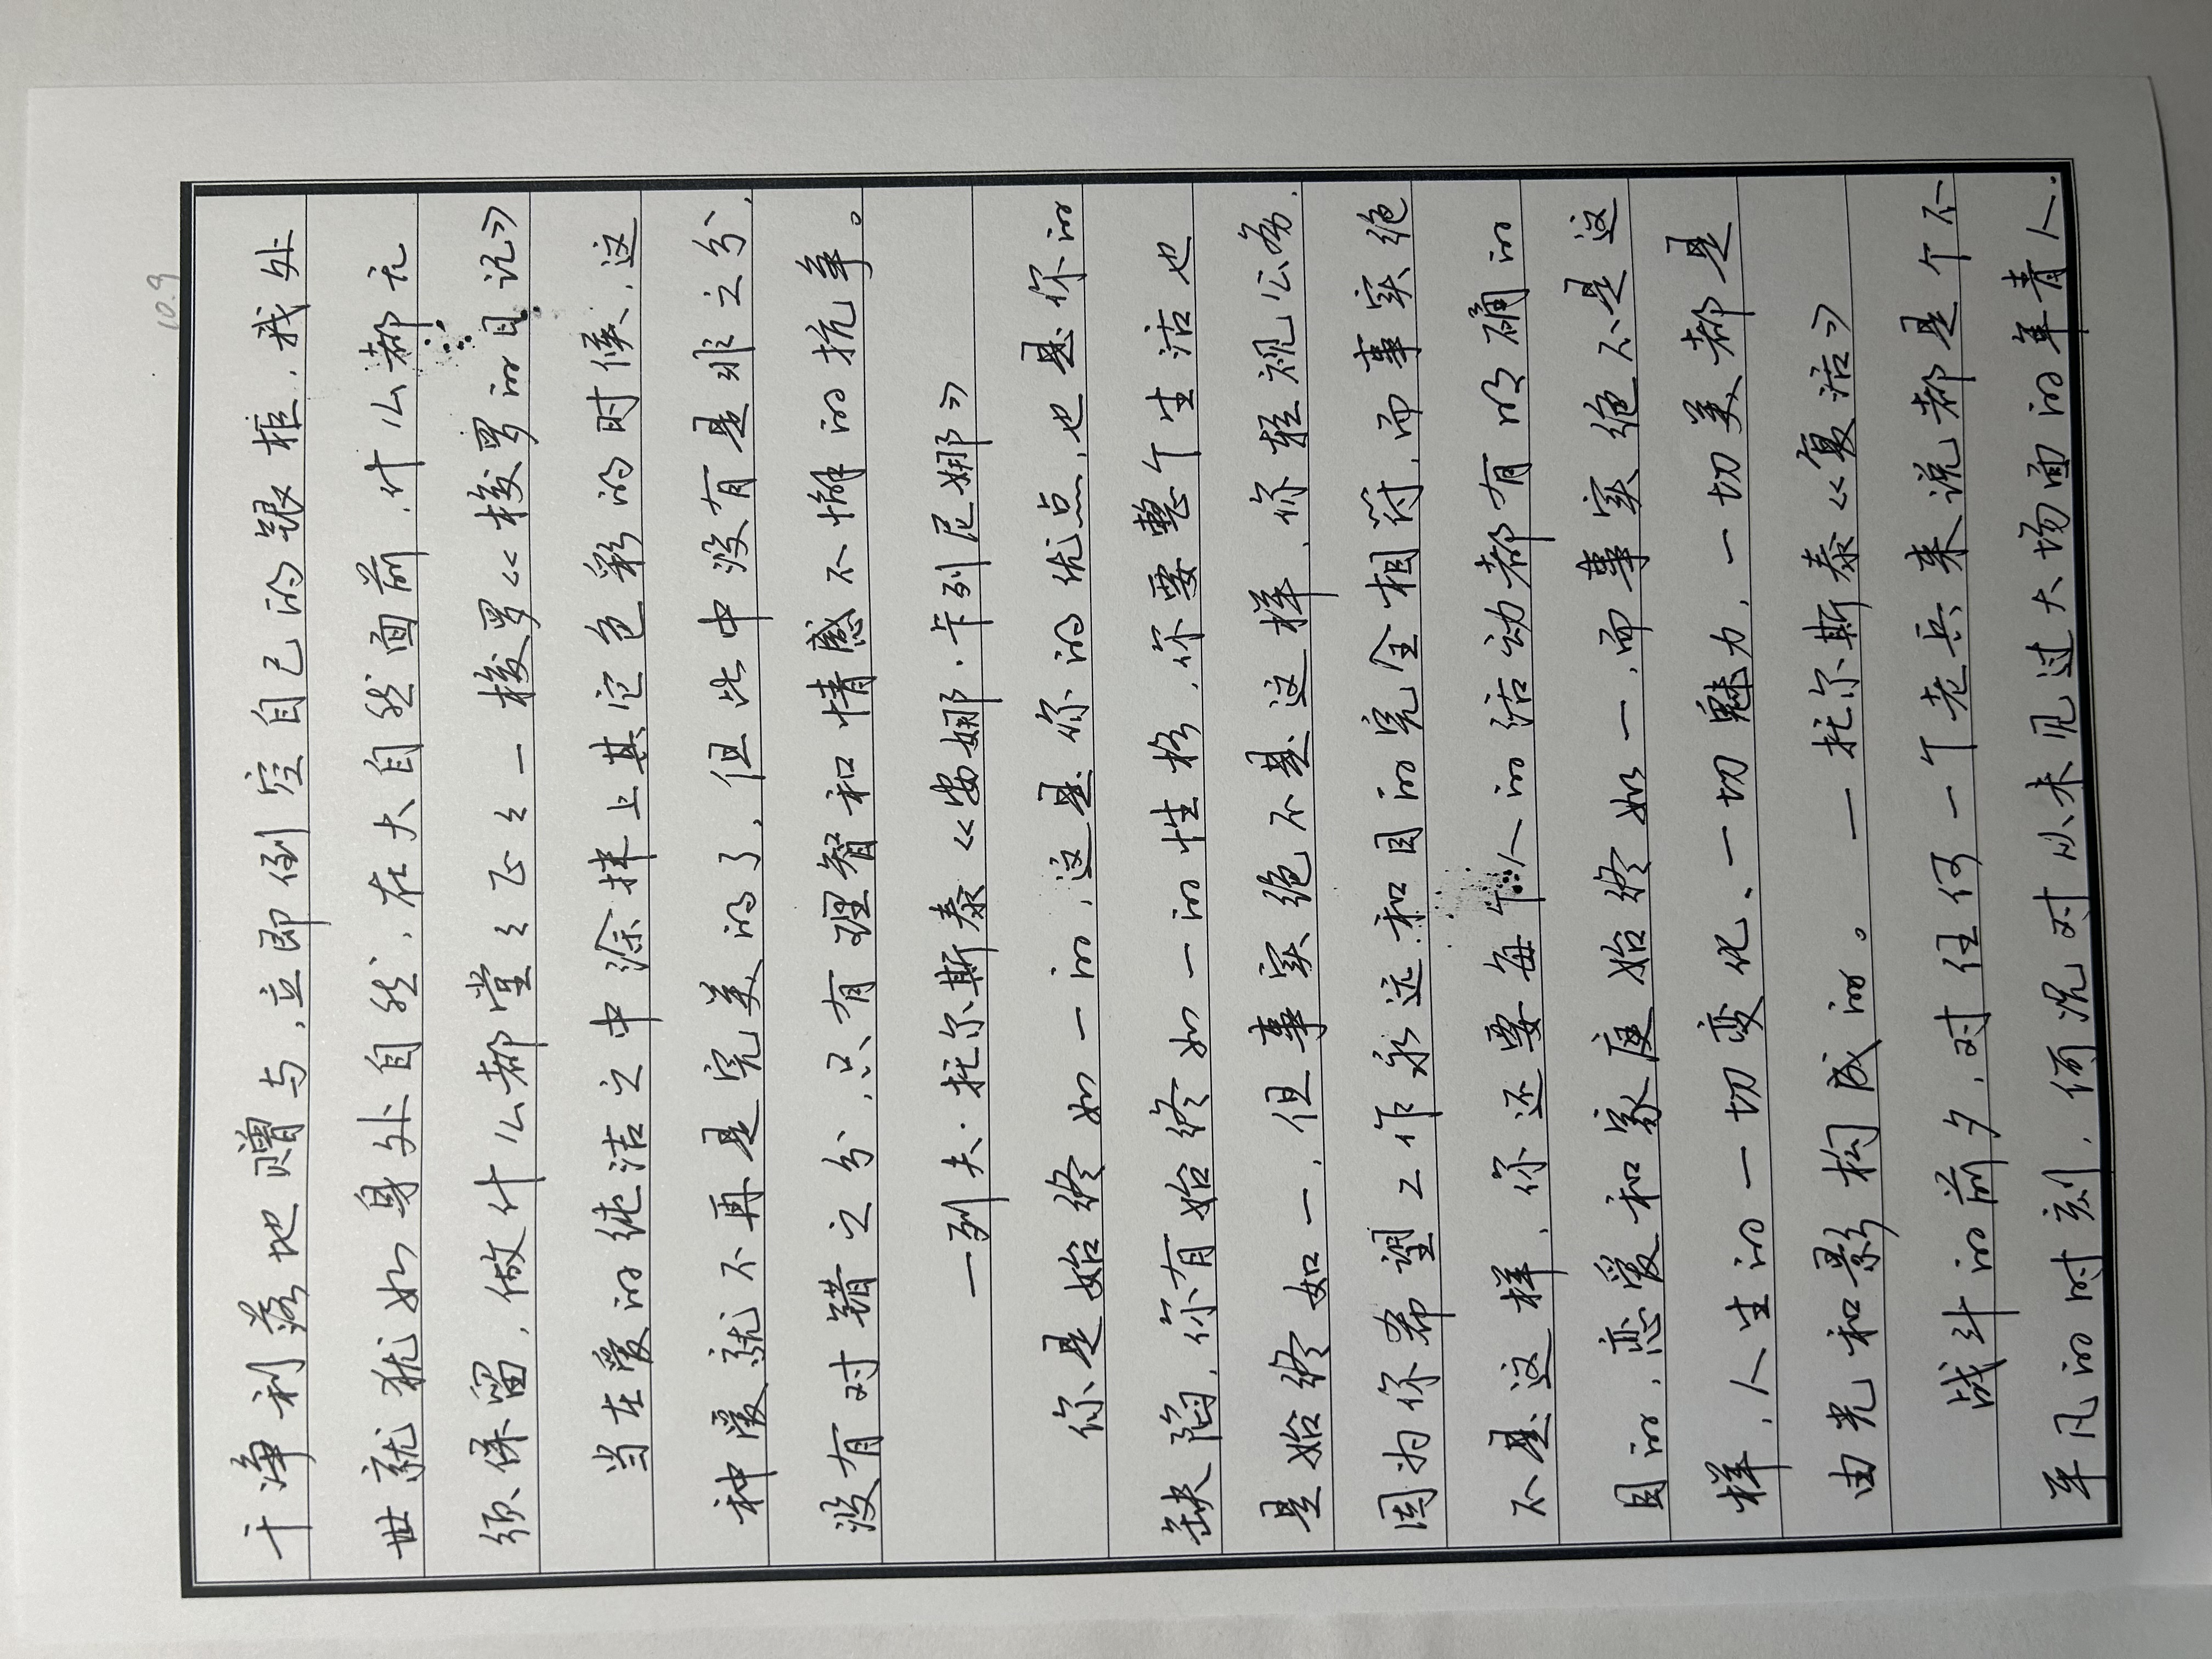 10.9
干净利落地赠与,立即倒空自己的银柜,我处
世就犹如身处自然,在大自然面前,什么都无
须保留,做什么都堂々正々—梭罗《梭罗的日记》
当在爱的纯洁之中涂抹上其它色彩的时候,这
种爱就不再是完美的了,但此中没有是非之分,
没有对错之分,只有理智和情感不懈的抗争。
—列夫·托尔斯泰《安娜·卡列尼娜》
你是始终如一的,这是你的优点,也是你的
缺陷,你有始终如一的性格,你要整个生活也
是始终如一,但事实绝不是这样,你轻视公务,
因为你希望工作永远和目的完全相符,而事实绝
不是这样,你还要每个人的活动都有明确的
目的,恋爱和家庭始终如一,而事实绝不是这
样,人生的一切变化、一切魅力,一切美都是
由光和影构成的。 —托尔斯泰《复活》
战斗的前夕,对任何一个老兵来说都是个不
平凡的时刻,何况对从未见过大场面的年青人.